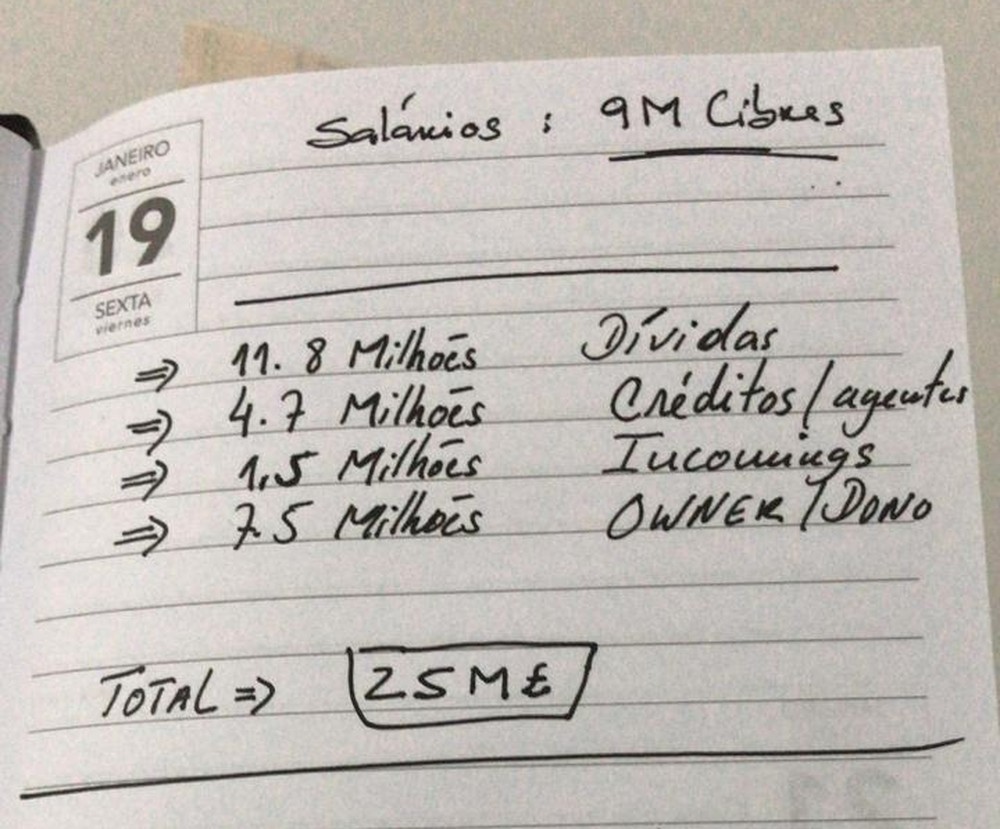 Salários : 9M Cibres
JANEIRO
enero
19
SEXTA
viernes
⇒ 11.8 Milhões Dívidas
⇒ 4.7 Milhões Créditos/agentes
⇒ 1,5 Milhões Incomings
⇒ 7.5 Milhões OWNER/DONO
TOTAL ⇒ 25M£